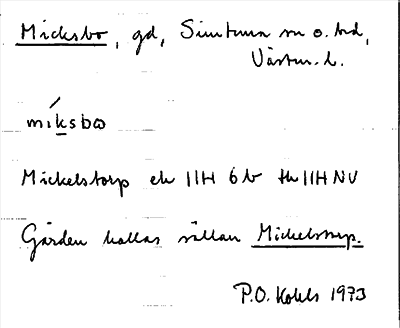 Micksbo, gd, Simtuna sn o. hd,
Västm. l.
míksbω
Mickelstorp ek 11H 6b tk 11H NV
Gården kallas sällan Mickelstorp.
P.O. Kohls 1973